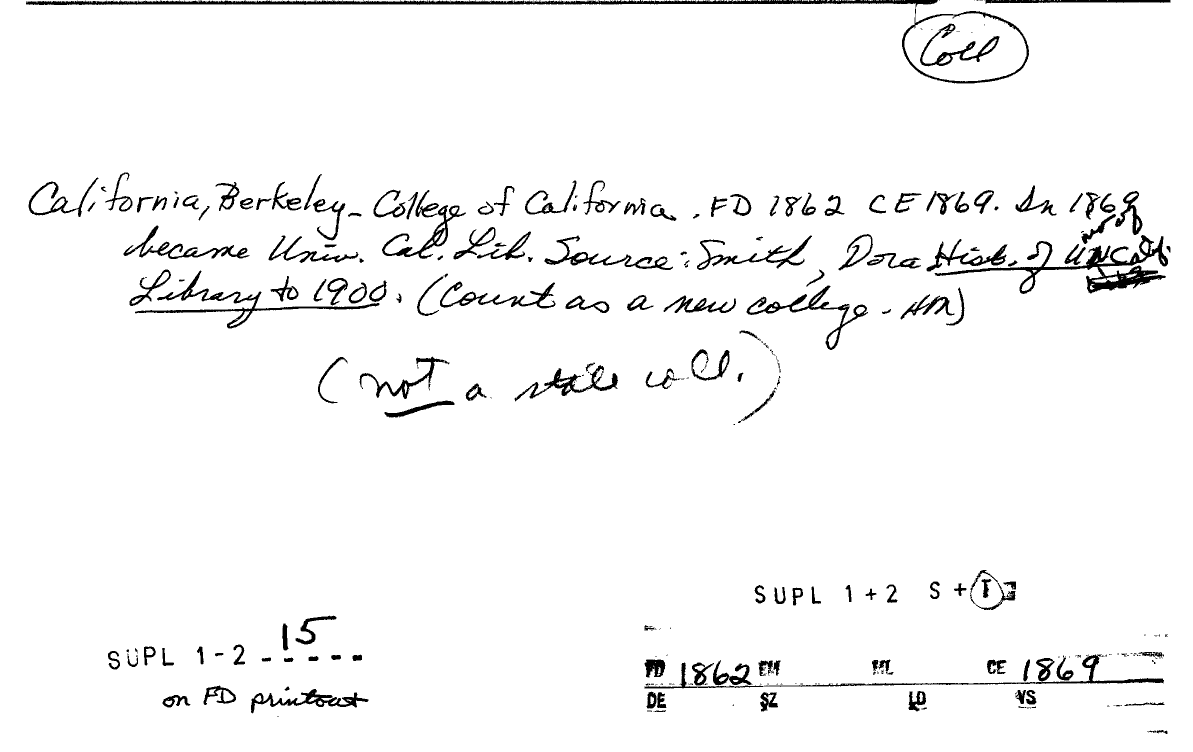 Coll
California, Berkeley - College of California. FD 1862 CE 1869. In 1869
became Univ. Cal. Lib. Source: Smith, Dora Hist. of Univ of Calif.
Library to 1900. (Count as a new college - HM)
(not a state coll.)
SUPL 1+2 S + T
SUPL 1-2 15
on FD printout
FD 1862 EM ML CE 1869
DE SZ LD VS